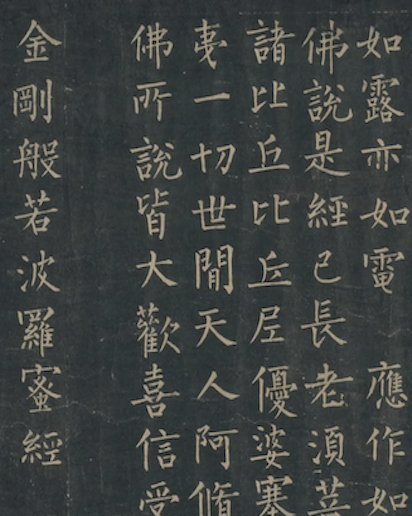 如露亦如電　應作如
佛說是經已長老湏菩
諸比丘比丘尼優婆塞
夷一切世閒天人阿脩
佛所說皆大歡喜信受
金剛般若波羅蜜經